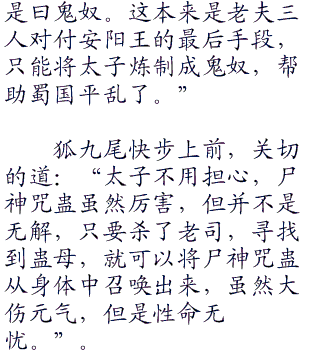 是曰鬼奴。这本来是老夫三
人对付安阳王的最后手段，
只能将太子炼制成鬼奴，帮
助蜀国平乱了。”
狐九尾快步上前，关切
的道：“太子不用担心，尸
神咒蛊虽然厉害，但并不是
无解，只要杀了老司，寻找
到蛊母，就可以将尸神咒蛊
从身体中召唤出来，虽然大
伤元气，但是性命无
忧。”。